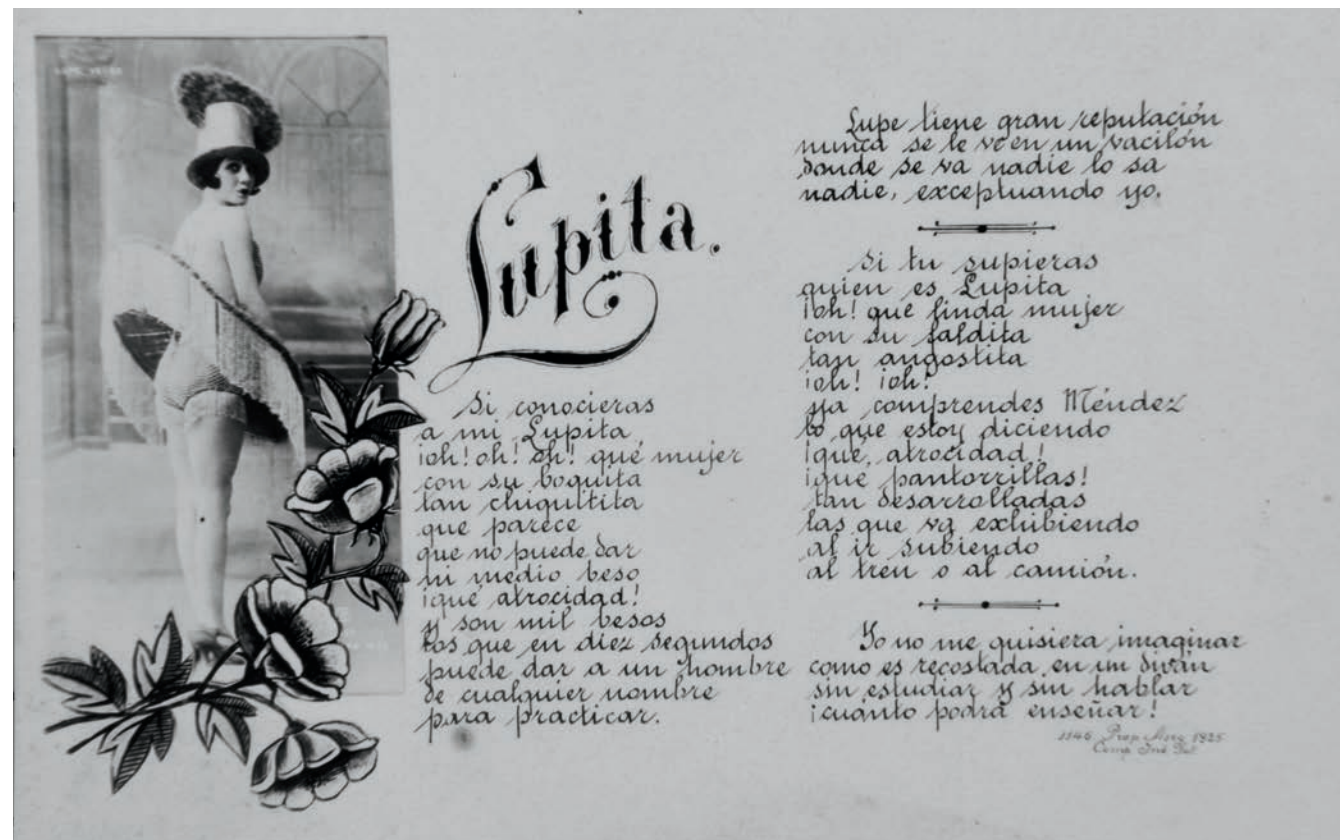 Lupita.
Si conocieras
a mi Lupita
¡oh! oh! oh! qué mujer
con su boquita
tan chiquitita
que parece
que no puede dar
ni medio beso
¡qué atrocidad!
y son mil besos
los que en diez segundos
puede dar a un hombre
de cualquier nombre
para practicar.
Lupe tiene gran reputación
nunca se le ve en un vacilón
donde se va nadie lo sa
nadie, exceptuando yo.
Si tu supieras
quien es Lupita
¡oh! qué linda mujer
con su faldita
tan angostita
¡oh! ¡oh!
ya comprendes Méndez
lo que estoy diciendo
¡qué atrocidad!
¡qué pantorrillas!
tan desarrolladas
las que va exhibiendo
al ir subiendo
al tren o al camión.
Yo no me quisiera imaginar
como es recostada en un diván
sin estudiar y sin hablar
¡cuánto podrá enseñar!
1146. Prop. 1925